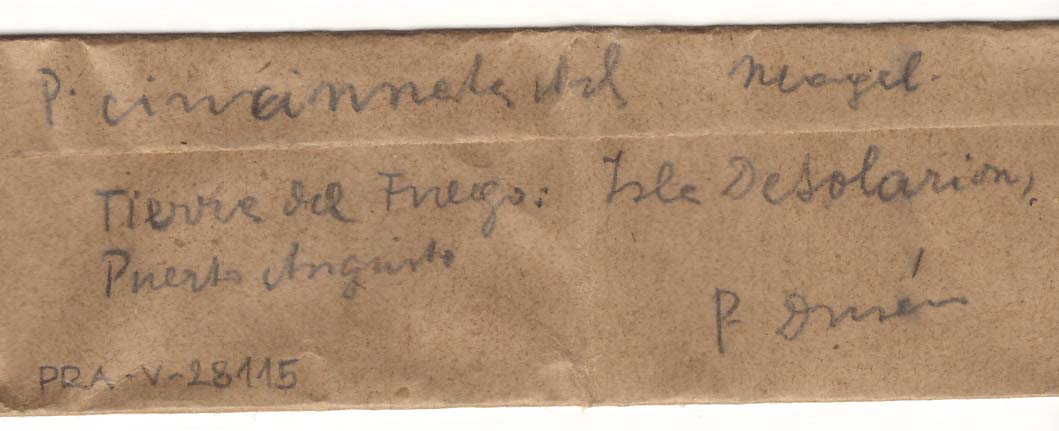 P. cincinnata Ach Magel.
Tierra del Fuego: Isla Desolacion,
Puerto Angusto
P. Dusén
PRA-V-28115